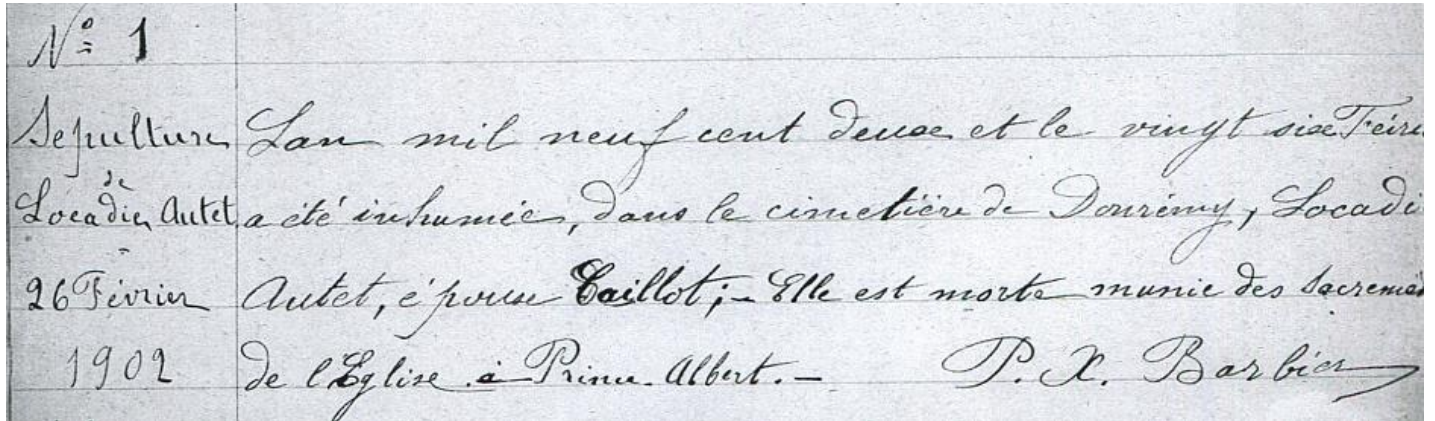 N° 1
Sépulture
de
Locadie Autet
26 Février
1902
Lan mil neuf cent deux et le vingt six Févri
a été inhumée, dans le cimetière de Domrémy, Locadi
Autet, épouse Caillot; – Elle est morte munie des Sacremen
de l'Eglise à Prince-Albert. –
P. X. Barbier